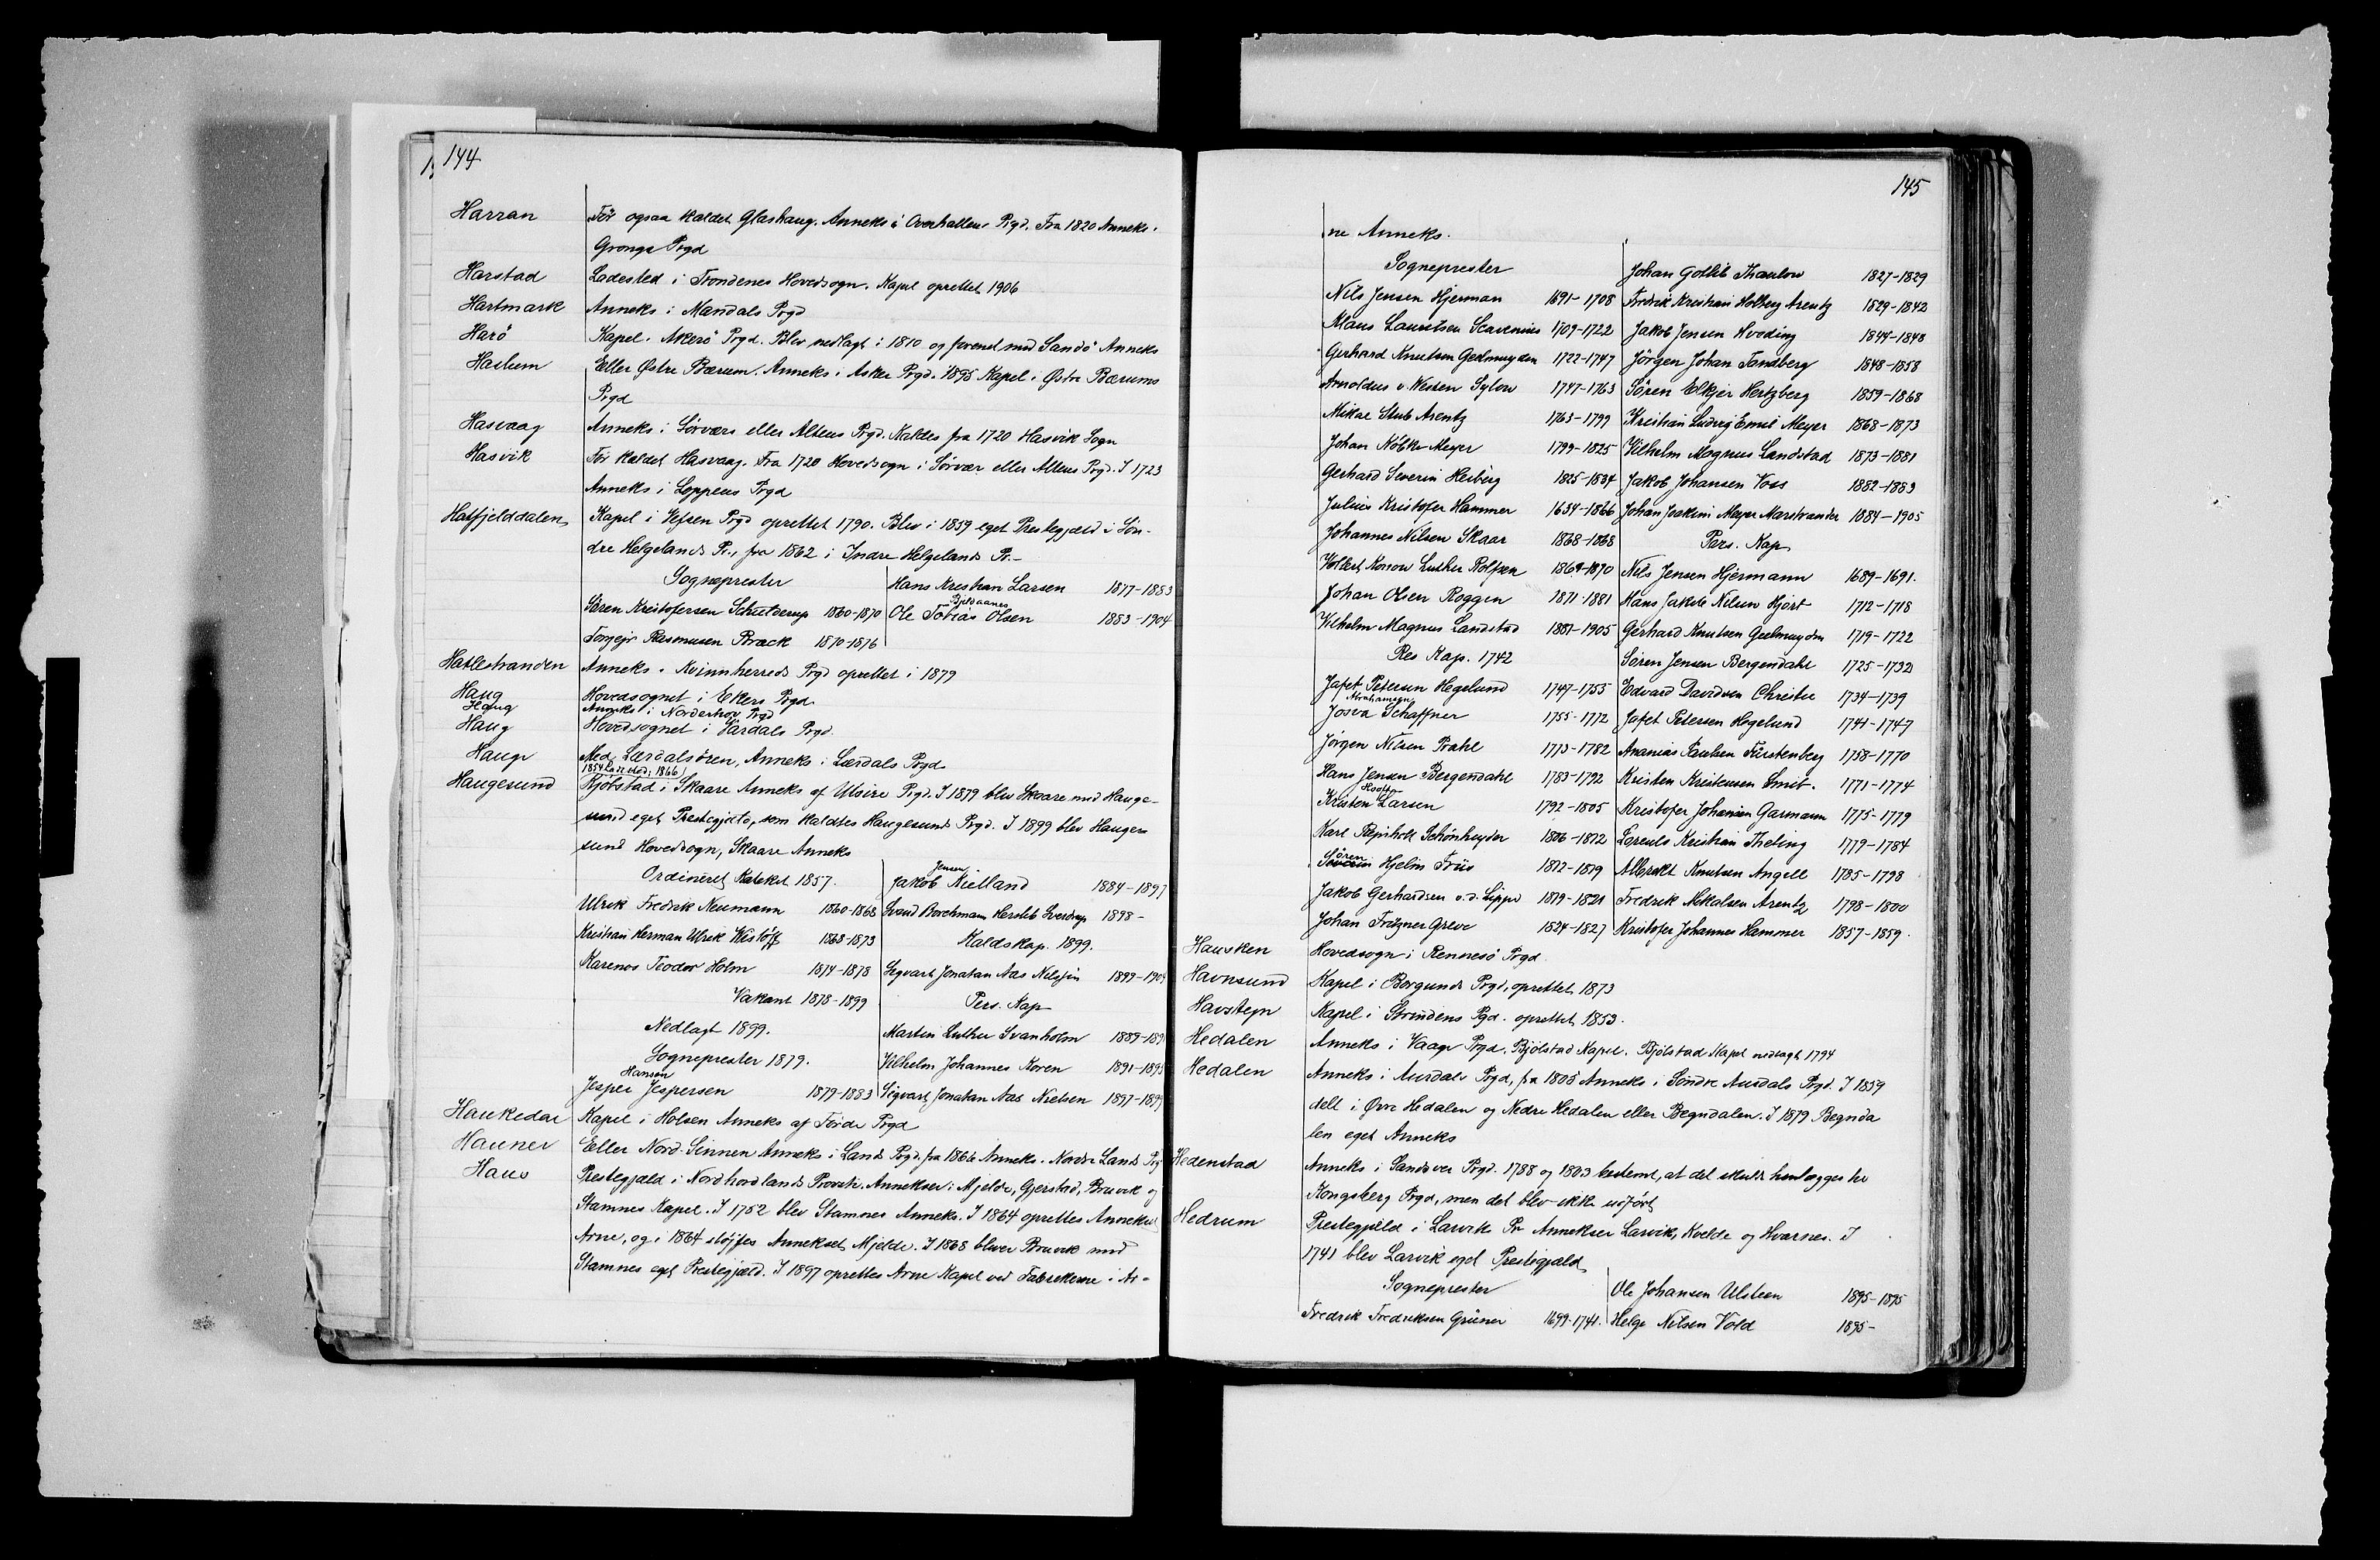 144
Harran Før ogsaa kaldet Glashaug. Anneks i Overhallens Prgd. Fra 1820 Anneks i
Grongs Prgd
Harstad Ladested i Trondenes Hovedsogn. Kapel oprettet 1906
Hartmark Anneks i Mandals Prgd
Harö Kapel i Akerö Prgd. Blev nedlagt i 1810 og forenet med Sandö Anneks
Haslum Eller Østre Bærum. Anneks i Asker Prgd. 1895 Kapel i Østre Bærums
Prgd
Hasvaag Anneks i Sörvær eller Altens Prgd. Kaldes fra 1720 Hasvik Sogn
Hasvik Før kaldet Hasvaag. Fra 1720 Hovedsogn i Sörvær eller Altens Prgd. I 1723
Anneks i Loppens Prgd
Hatfjelddalen Kapel i Vefsen Prgd oprettet 1790. Blev i 1859 eget Prestegjæld i Søn-
dre Helgelands Pr., fra 1862 i Indre Helgelands Pr.-
Sogneprester
Sören Kristofersen Schielderup 1860-1870
Torgejr Rasmussen Bræck 1870-1876
Hans Kristian Larsen 1877-1883
Bjelvaanes
Ole Tobias Olsen 1883-1904
Hatlestranden Anneks i Kvinnherreds Prgd oprettet i 1879
Haug Hovedsognet i Ekers Prgd
Haug Anneks i Norderhov Prgd
Haug Hovedsognet i Vardals Prgd.
Hauge Med Lærdalsören, Anneks i Lærdals Prgd
1854 Ladested, 1866
Haugesund Kjöbstad i Skaare Anneks af Utsire Prgd. I 1879 blev Skaare med Hauge-
sund eget Prestegjæld, som kaldtes Haugesunds Prgd. I 1899 blev Hauge-
sund Hovedsogn, Skaare Anneks
Ordineret Kateket 1857.
Ulrik Fredrik Neumann 1860-1868
Kristian Herman Ulrik Wislöff 1868-1873
Karenos Teodor Holm 1874-1878
Vakant 1878-1899
Nedlagt 1899.
Sogneprester 1879.
Hansen
Jesper Jespersen 1879-1883
Jensen
Jakob Kielland 1884-1897
Svend Borchmann Hersleb Sverdrup 1898-
Kaldskap. 1899.
Segvart Jonatan Aas Nilssen 1899-190
Pers. Kap
Martin Luther Svanholm 1889-189
Vilhelm Johannes Koren 1891-1895
Sigvart Jonatan Aas Nielsen 1897-1899
Haukedal Kapel i Holsen Anneks af Förde Prgd
Hauner Eller Nord-Sinnen Anneks i Lands Prgd. fra 1866 Anneks i Nordre Lands Prg
Haus Prestegjæld i Nordhordlands Provsti. Annekser: Mjelde, Gjerstad, Bruvik og
Stamnes Kapel. I 1752 blev Stamnes Anneks. I 1864 oprettes Annekset
Arne, og i 1864 slöjfes Annekset Mjelde. I 1868 bliver Bruvik med
Stamnes eget Prestegjæld. I 1897 oprettes Arne Kapel ved Fabrikerne i Ar-
145
ne Anneks.
Sogneprester
Nils Jensen Hjerman 1691-1708
Klaus Lauritsen Scavenius 1709-1722
Gerhard Knutsen Geelmuyden 1722-1747
Arnoldus v. Westen Sylow 1747-1763
Mikal Stub Arentz 1763-1799
Johan Nöbke Meyer 1799-1825
Gerhard Severin Heiberg 1825-1834
Julius Kristofer Hammer 1834-1866
Johannes Nilsen Skaar 1868-1868
Vollert Konow Luther Rolfsen 1869-1870
Johan Olsen Roggen 1871-1881
Vilhelm Magnus Landstad 1881-1905
Res Kap. 1742
Jafet Petersen Hegelund 1747-1755
Abrahamsen
Josva Schaffner 1755-1772
Jörgen Nilsen Prahl 1773-1782
Hans Jensen Bergendahl 1783-1792
Kristen Larsen 1792-1805
Karl Schönheyder 1806-1812
Sören Hjelm Friis 1812-1819
Jakob Gerhardsen v. d. Lippe 1819-1821
Johan Fritzner Greve 1824-1827
Johan Gotlib Thaulow 1827-1829
Fredrik Kristian Holberg Arentz 1829-1842
Jakob Jensen Hvoding 1844-1848
Jörgen Johan Tandberg 1848-1858
Sören Elkjer Hertzberg 1859-1868
Kristian Ludvig Emil Meyer 1868-1873
Vilhelm Magnus Landstad 1873-1881
Jakob Johansen Voss 1882-1883
Johan Joakim Meyer Marstrander 1884-1905
Pers. Kap
Nils Jensen Hjermann 1689-1691.
Hans Jakob Nilsen Hjort 1712-1718
Gerhard Knutsen Geelmuyden 1719-1722
Sören Jensen Bergendahl 1725-1732
Edvard Davidsen Christie 1734-1739
Jafet Petersen Hegelund 1741-1747
Ananias Paulsen Fürstenberg 1758-1770
Kristen Kristensen Smit. 1771-1774
Kristofer Johansen Garmann 1775-1779
Lorents Kristian Theting 1779-1784
Albrekt Knutsen Angell 1785-1798
Fredrik Nikolsen Arentz 1798-1800
Kristofer Johannes Hammer 1857-1859.
Hausken Hovedsogn i Rennesö Prgd
Havnsund Kapel i Borgunds Prgd, oprettet 1873
Havstein Kapel i Strindens Pgd. oprettet 1853.
Hedalen Anneks i Vaage Prgd. Bjölstad Kapel. Bjölstad Kapel nedlagt 1794
Hedalen Anneks i Aurdals Prgd, fra 1805 Anneks i Söndre Aurdals Prgd. I 1859
delt i Øvre Hedalen og Nedre Hedalen eller Begndalen. I 1879 Begnda
len eget Anneks
Hedenstad Anneks i Sandsver Prgd. 1788 og 1803 bestemt, at det skulde henlægges til
Kongsberg Prgd, men det blev ikke udfört
Hedrum Prestegjeld i Larvik Pr Annekser Larvik, Kvelde og Hvarnes. I
1741 blev Larvik eget Prestegjæld
Sogneprester
Fredrik Fredriksen Grüner 1699-1741.
Ole Johansen Ulsteen 1895-1895
Helge Nilsen Vold 1895-